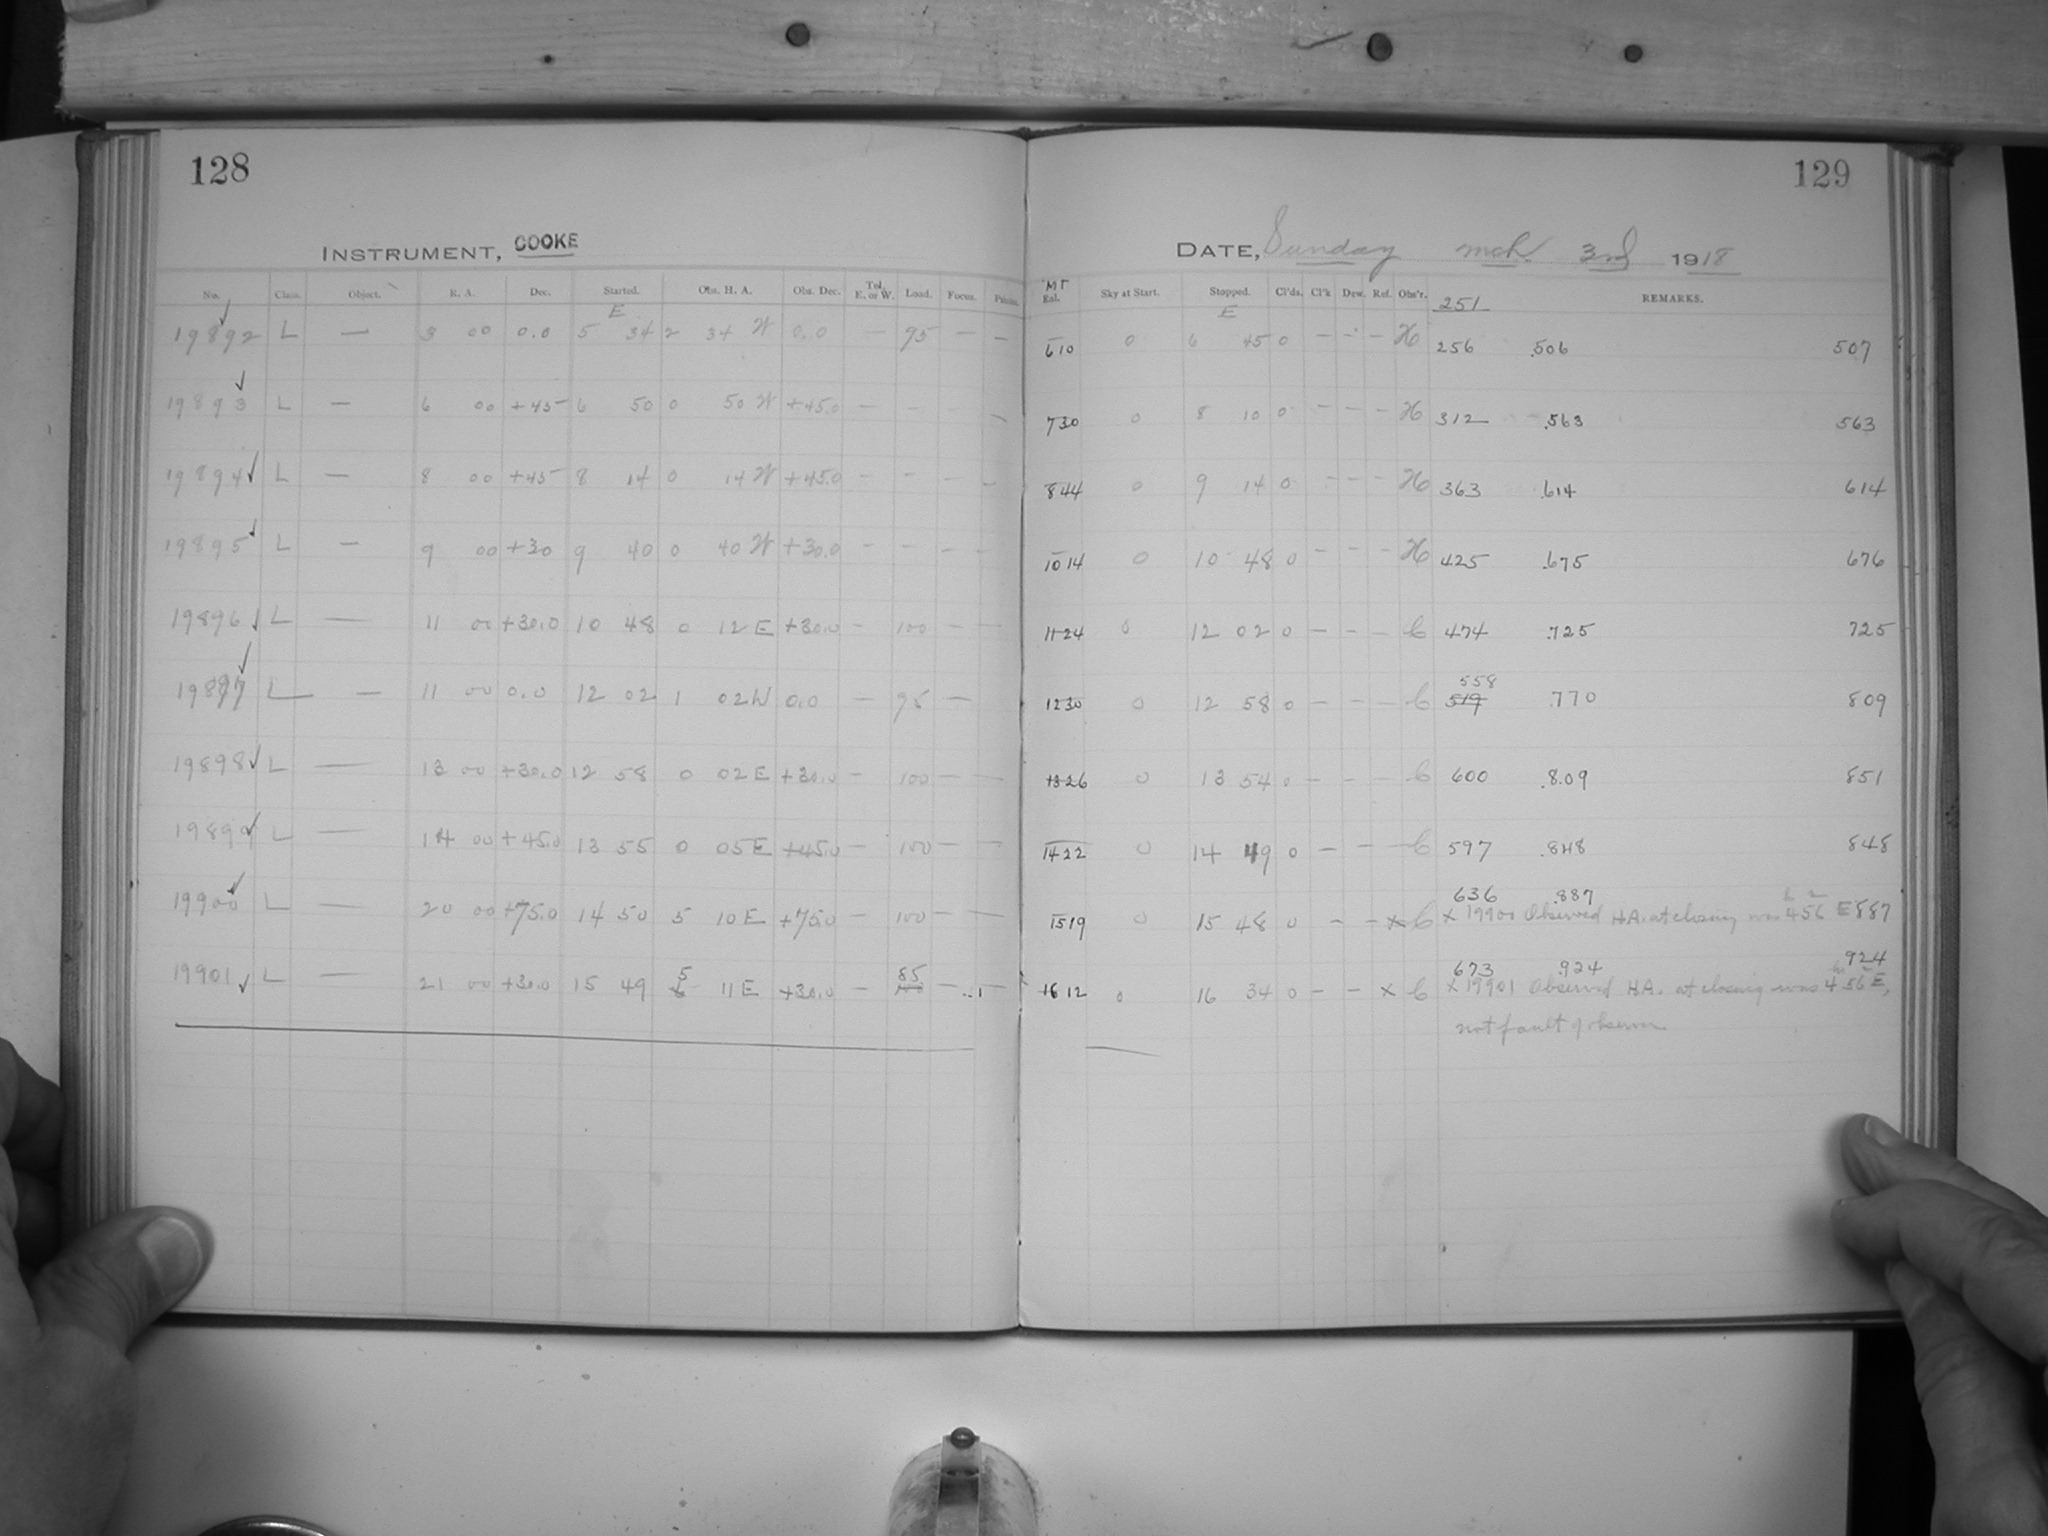 128
INSTRUMENT, COOKE
No. Class. Object. R. A. Dec. Started. Obs. H. A. Obs. Dec. Tel. E. or W. Load. Focus.
E
19892 L — 3 00 0.0 5 34 2 34 W 0.0 — 95 — —
19893 L — 6 00 +45 6 50 0 50 W +45.0 — - - —
19894 L — 8 00 +45 8 14 0 14 W +45.0 — - - —
19895 L — 9 00 +30 9 40 0 40 W +30.0 - - - -
19896 L — 11 00 +30.0 10 48 0 12 E +30.0 — 100 — —
19897 L — 11 00 0.0 12 02 1 02 W 0.0 — 95 —
19898 L — 13 00 +30.0 12 58 0 02 E +30.0 — 100 — —
19899 L — 14 00 +45.0 13 55 0 05 E +45.0 — 100 — —
19900 L — 20 00 +75.0 14 50 5 10 E +75.0 — 100 — —
85
19901 L — 21 00 +30.0 15 49 5 11 E +30.0 — — —
129
DATE, Sunday Mch. 3rd 1918
MT
Sky at Start. Stopped. Cl'ds. Cl'k Dew. Ref. Obs'r. 251 REMARKS.
E
6 10 0 6 45 0 — — — H 256 .506 507
7 30 0 8 10 0 — — — H 312 .563 563
8 44 0 9 14 0 - — — H 363 .614 614
10 14 0 10 48 0 — — — H 425 .675 676
11 24 0 12 02 0 — — — C 474 .725 725
558
12 30 0 12 58 0 — — — C 519 .770 809
13 26 0 13 54 0 — — — C 600 8.09 851
14 22 0 14 49 0 — — — C 597 .848 848
636 .887
15 19 0 15 48 0 — — x C x 19900 Observed H.A. at closing was 4 56 E 887
673 .924 924
16 12 0 16 34 0 — — x C x 19901 Observed H.A. at closing was 4 56 E,
not fault of observer